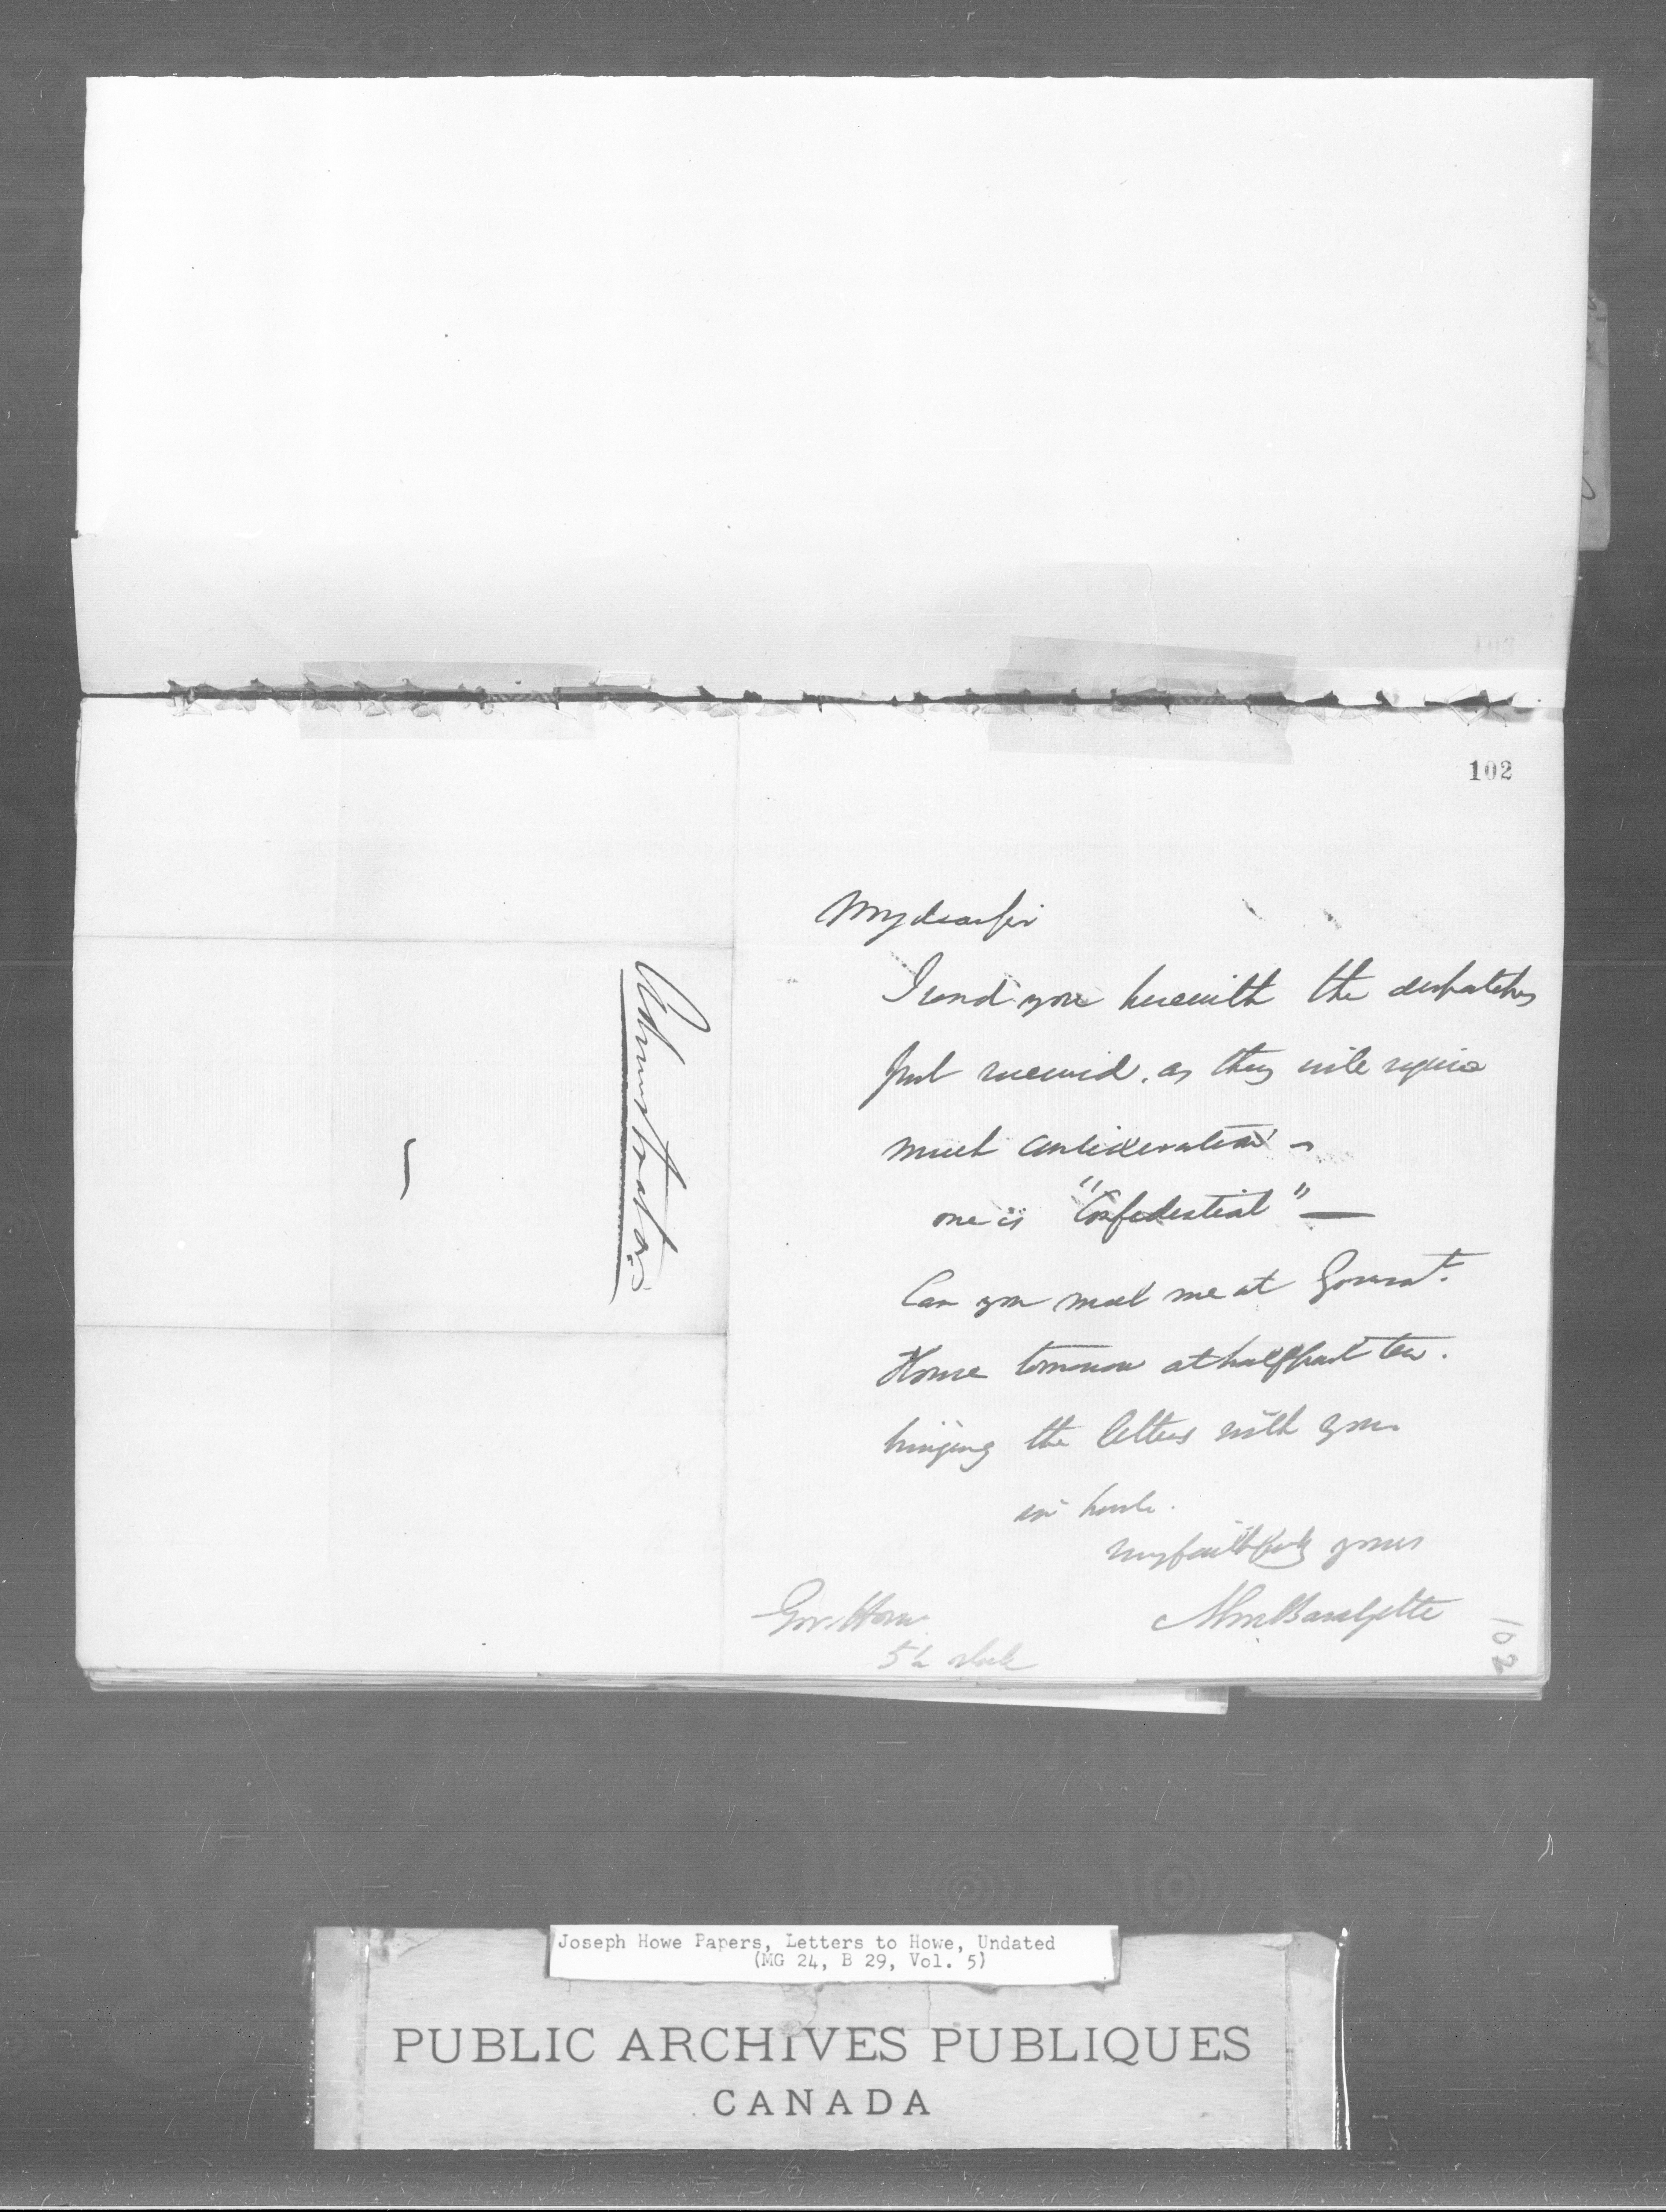 102
My dear sir
I send you herewith the despatches
just received, as they will require
much consideration
one is "Confidential" —
Can you meet me at Governt.
House tomorrow at half past ten.
bringing the letters with you
in haste.
very faithfully yours
Gov. House
5 o'clock
Administrator
102
Joseph Howe Papers, Letters to Howe, Undated
(MG 24, B 29, Vol. 5)
PUBLIC ARCHIVES PUBLIQUES
CANADA